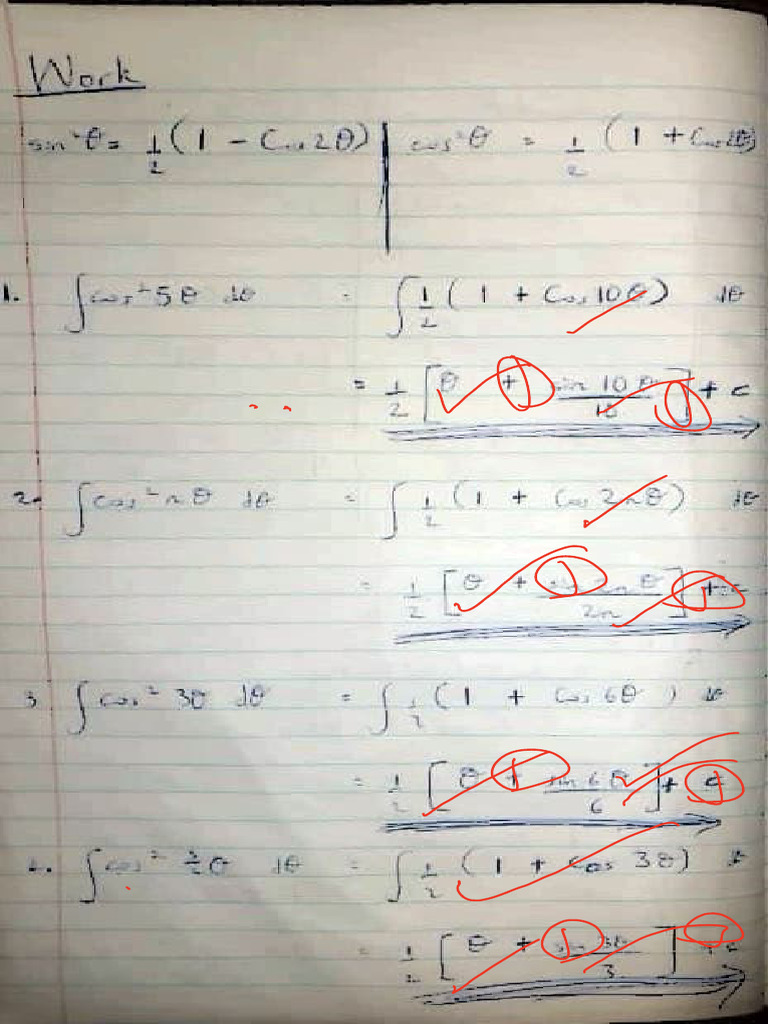 Work
sin²θ = 1/2 (1 - Cos 2θ) | cos²θ = 1/2 (1 + Cos 2θ)
1. ∫ cos² 5θ dθ = ∫ 1/2 (1 + Cos 10θ) dθ
= 1/2 [θ + sin 10θ/10] + c
2. ∫ cos² nθ dθ = ∫ 1/2 (1 + Cos 2nθ) dθ
= 1/2 [θ + sin 2nθ/2n] + c
3 ∫ cos² 3θ dθ = ∫ 1/2 (1 + Cos 6θ) dθ
= 1/2 [θ + sin 6θ/6] + c
4. ∫ cos² 3/2θ dθ = ∫ 1/2 (1 + Cos 3θ) dθ
= 1/2 [θ + sin 3θ/3] + c